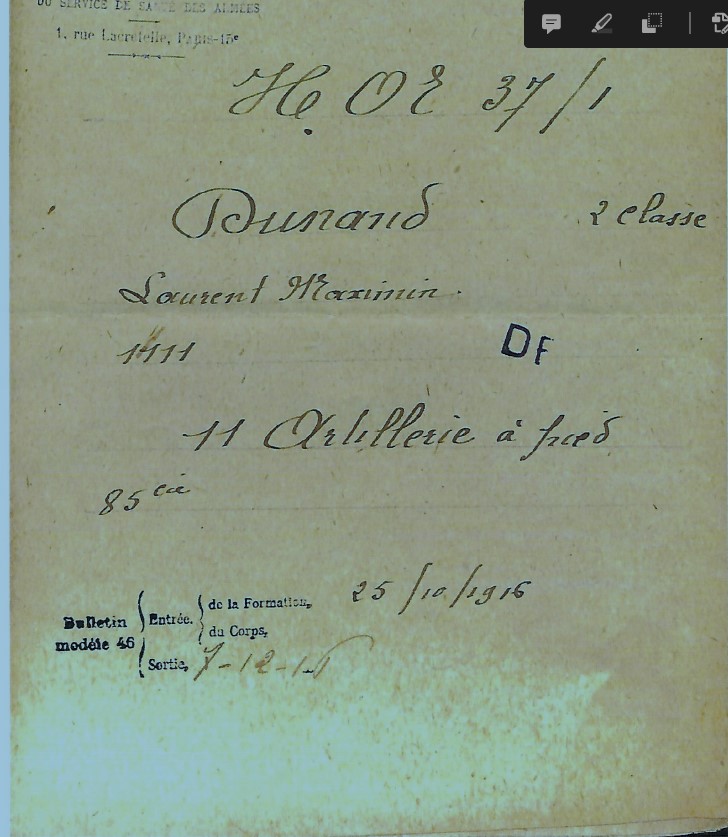 DU SERVICE DE SANTÉ DES ARMÉES
1, rue Lacretelle, PARIS-15e
H. O E 37/1
Dunand 2 classe
Laurent Maximin.
DF
11 Artillerie à pied
85 cie
25/10/1916
Bulletin modéle 46
Entrée.
de la Formation,
du Corps,
Sortie, 7-12-16